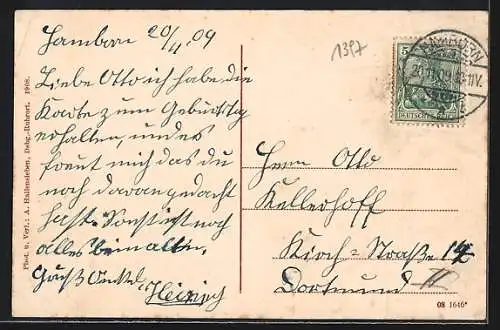 Hamborn 20/4.09
Liebe Otto ich habe die
Karte zum Geburtstag
erhalten, und es
freut mich das du
noch daran gedacht
hast. Sonst ist noch
alles beim alten,
Gruß Onkel
Heinrich
Herrn Otto
Kellerhoff
Kirch-Straße 14
Dortmund
1397
5
DEUTSCHES REICH
HAMBORN
Phot. u. Verl.: A. Hallensleben, Dsbg.-Ruhrort. 1908.
08 1646*